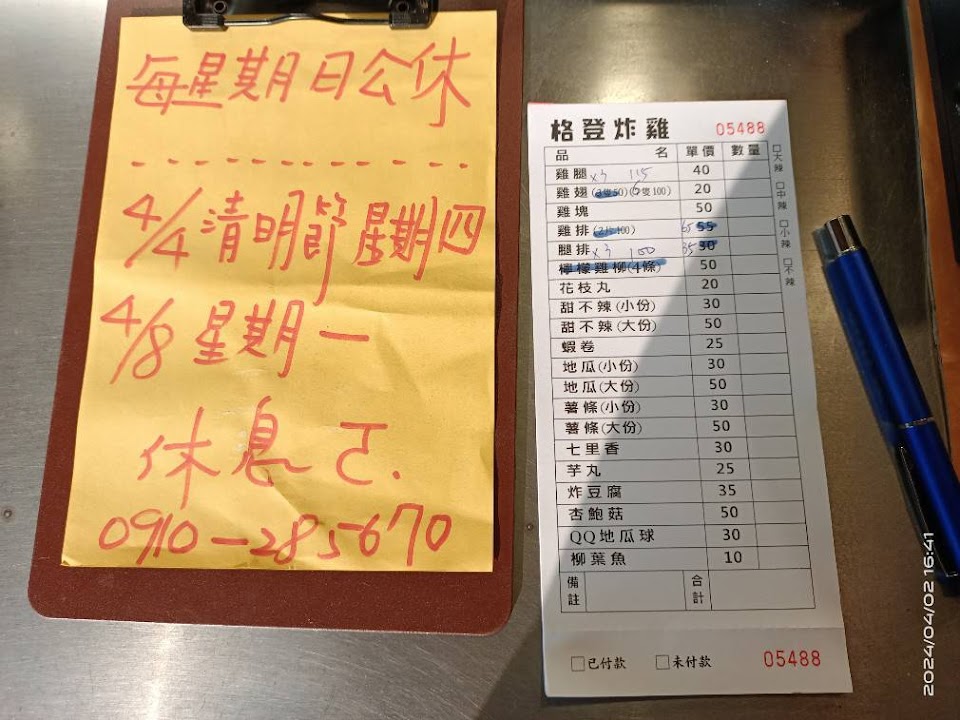 每星期日公休
4/4清明節星期四
4/8星期一
休息
0910-285670
格登炸雞 05488
品名 單價 數量
雞腿 x3 115 40
雞翅(2隻50)(5隻100) 20
雞塊 50
雞排(2片100) 65 55
腿排 x3 100 35 30
檸檬雞柳(4條) 50
花枝丸 20
甜不辣(小份) 30
甜不辣(大份) 50
蝦卷 25
地瓜(小份) 30
地瓜(大份) 50
薯條(小份) 30
薯條(大份) 50
七里香 30
芋丸 25
炸豆腐 35
杏鮑菇 50
QQ地瓜球 30
柳葉魚 10
備註 合計
□大辣 □中辣 □小辣 □不辣
□已付款 □未付款 05488
2024/04/02 16:41